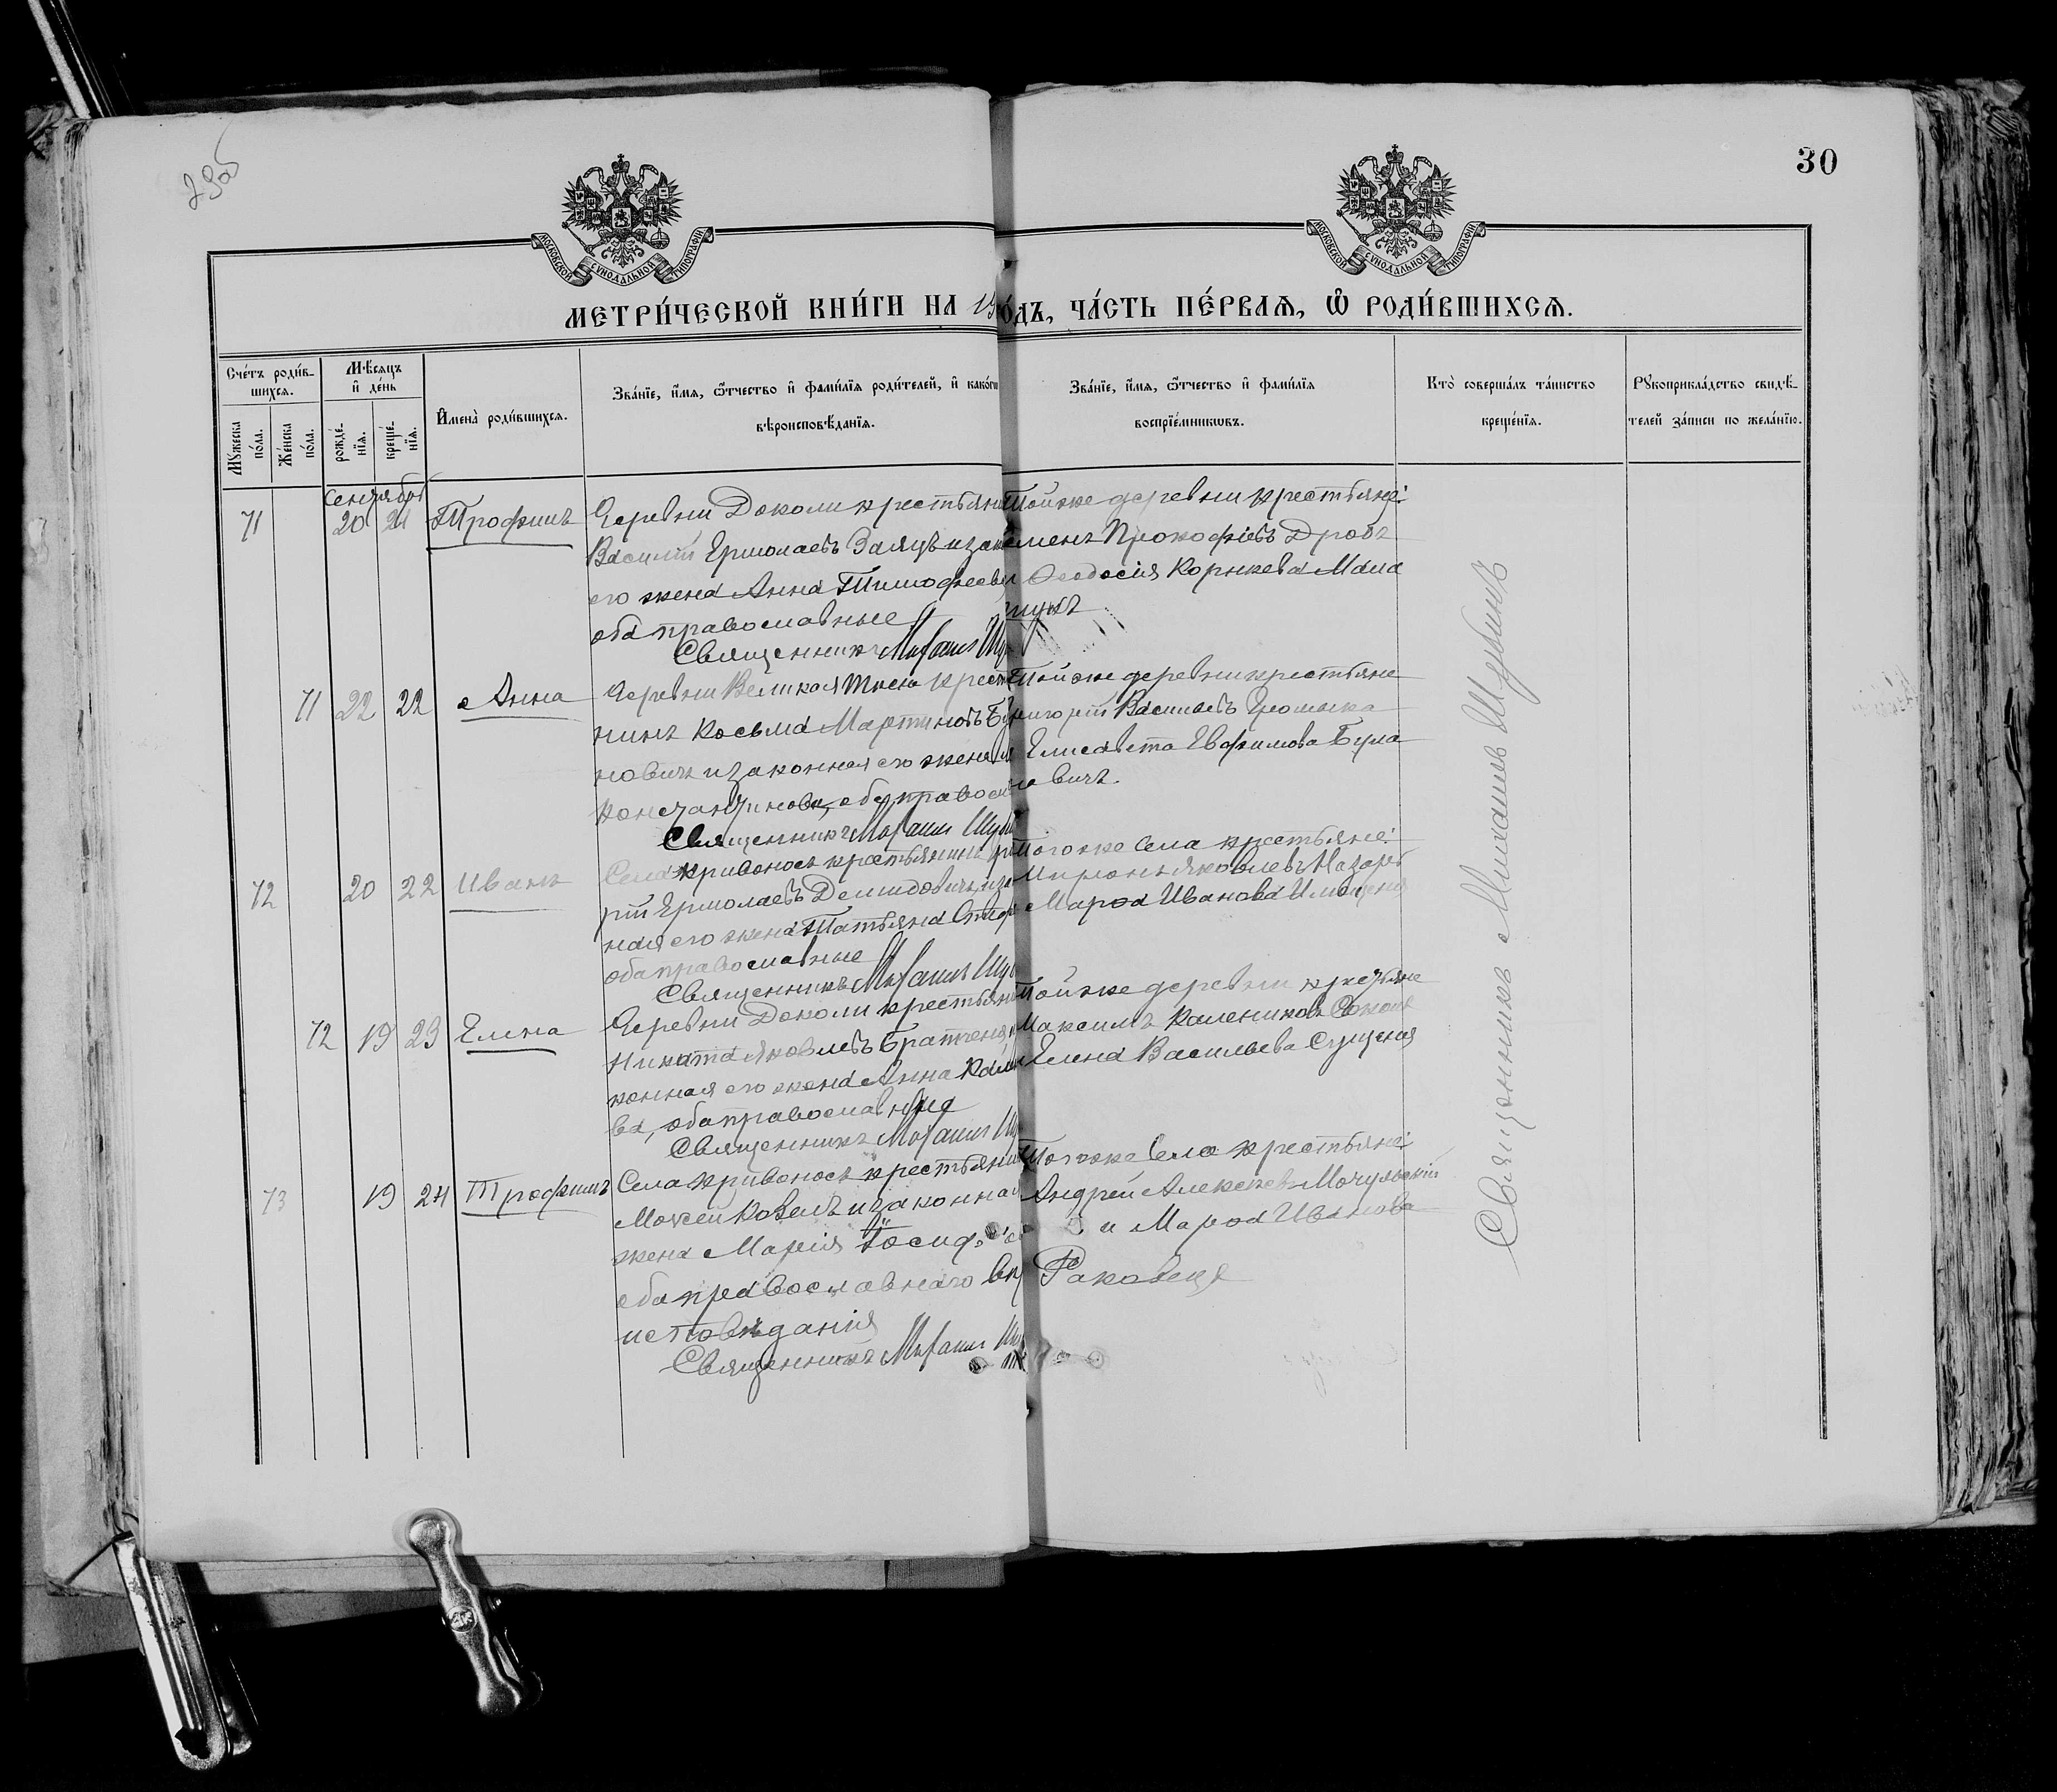 29об
30
МОСКОВСКОЙ СѴНОДАЛЬНОЙ ТИПОГРАФІИ
МОСКОВСКОЙ СѴНОДАЛЬНОЙ ТИПОГРАФІИ
МЕТРИ́ЧЕСКОЙ КНИ́ГИ НА 19
О́ДЪ, ЧА́СТЬ ПЕ́РВАѦ, Ѡ҆ РОДИ́ВШИХСѦ.
Сче́тъ роди́в-
шихсѧ.
Мꙋжеска
по́ла.
Же́нска
по́ла.
Мѣ́сѧцъ
и҆ де́нь
рожде́-
нїѧ.
креще́-
нїѧ.
И҆мена̀ роди́вшихсѧ.
Зва́нїе, и҆́мѧ, ѻ҆́тчество и҆ фами́лїѧ роди́телей, и҆ како́гѡ
вѣроисповѣ́данїѧ.
Зва́нїе, и҆́мѧ, ѻ҆́тчество и҆ фами́лїѧ
воспрїе́мникѡвъ.
Кто̀ соверша́лъ та́инство
креще́нїѧ.
Рꙋкоприкла́дство свидѣ́-
телей за́писи по жела́нїю.
Сентябрь
71 20 21 Трофимъ
Деревни Доколи крестьяни
Василій Ермолаевъ Заяцъ и зако
его жена Анна Тимофеева
оба православные
Священникъ Михаилъ
Той же деревни крестьяне:
Прокофіевъ Дробъ
Феодосія Корнеева Мала
71 22 22 Анна
Деревни Великая крест
нинъ Косьма Мартиновъ
новичъ и законная его жена
Константинова, оба правосл
Священникъ Михаилъ
Той же деревни крестьяне
Григорій Васильевъ
Елисавета Евфимова Була
новичъ.
72 20 22 Иванъ
Села Кривоносъ крестьянинъ
рій Ермолаевъ Демидовичъ, и за
ная его жена Татьяна
оба православные
Священникъ Михаилъ
Того же села крестьяне:
Миронъ Яковлевъ Назаръ
Марѳа Иванова
72 19 23 Елена
Деревни Доколи крестьяни
Никита Яковлевъ Братченя
конная его жена Анна
ва, оба православные
Священникъ Михаилъ
Той же деревни крестьяне
Максимъ Калениковъ
Елена Васильева Сущеня
73 19 24 Трофимъ
Села Кривоносъ крестьяни
Моисей Коваль и законная
жена Марія
оба православнаго вѣ
исповѣданія
Священникъ Михаилъ
Того же села крестьяне:
Андрей Алексеевъ Мочульскій
и Марѳа Иванова
Раковецъ
Священникъ Михаилъ Шубинъ